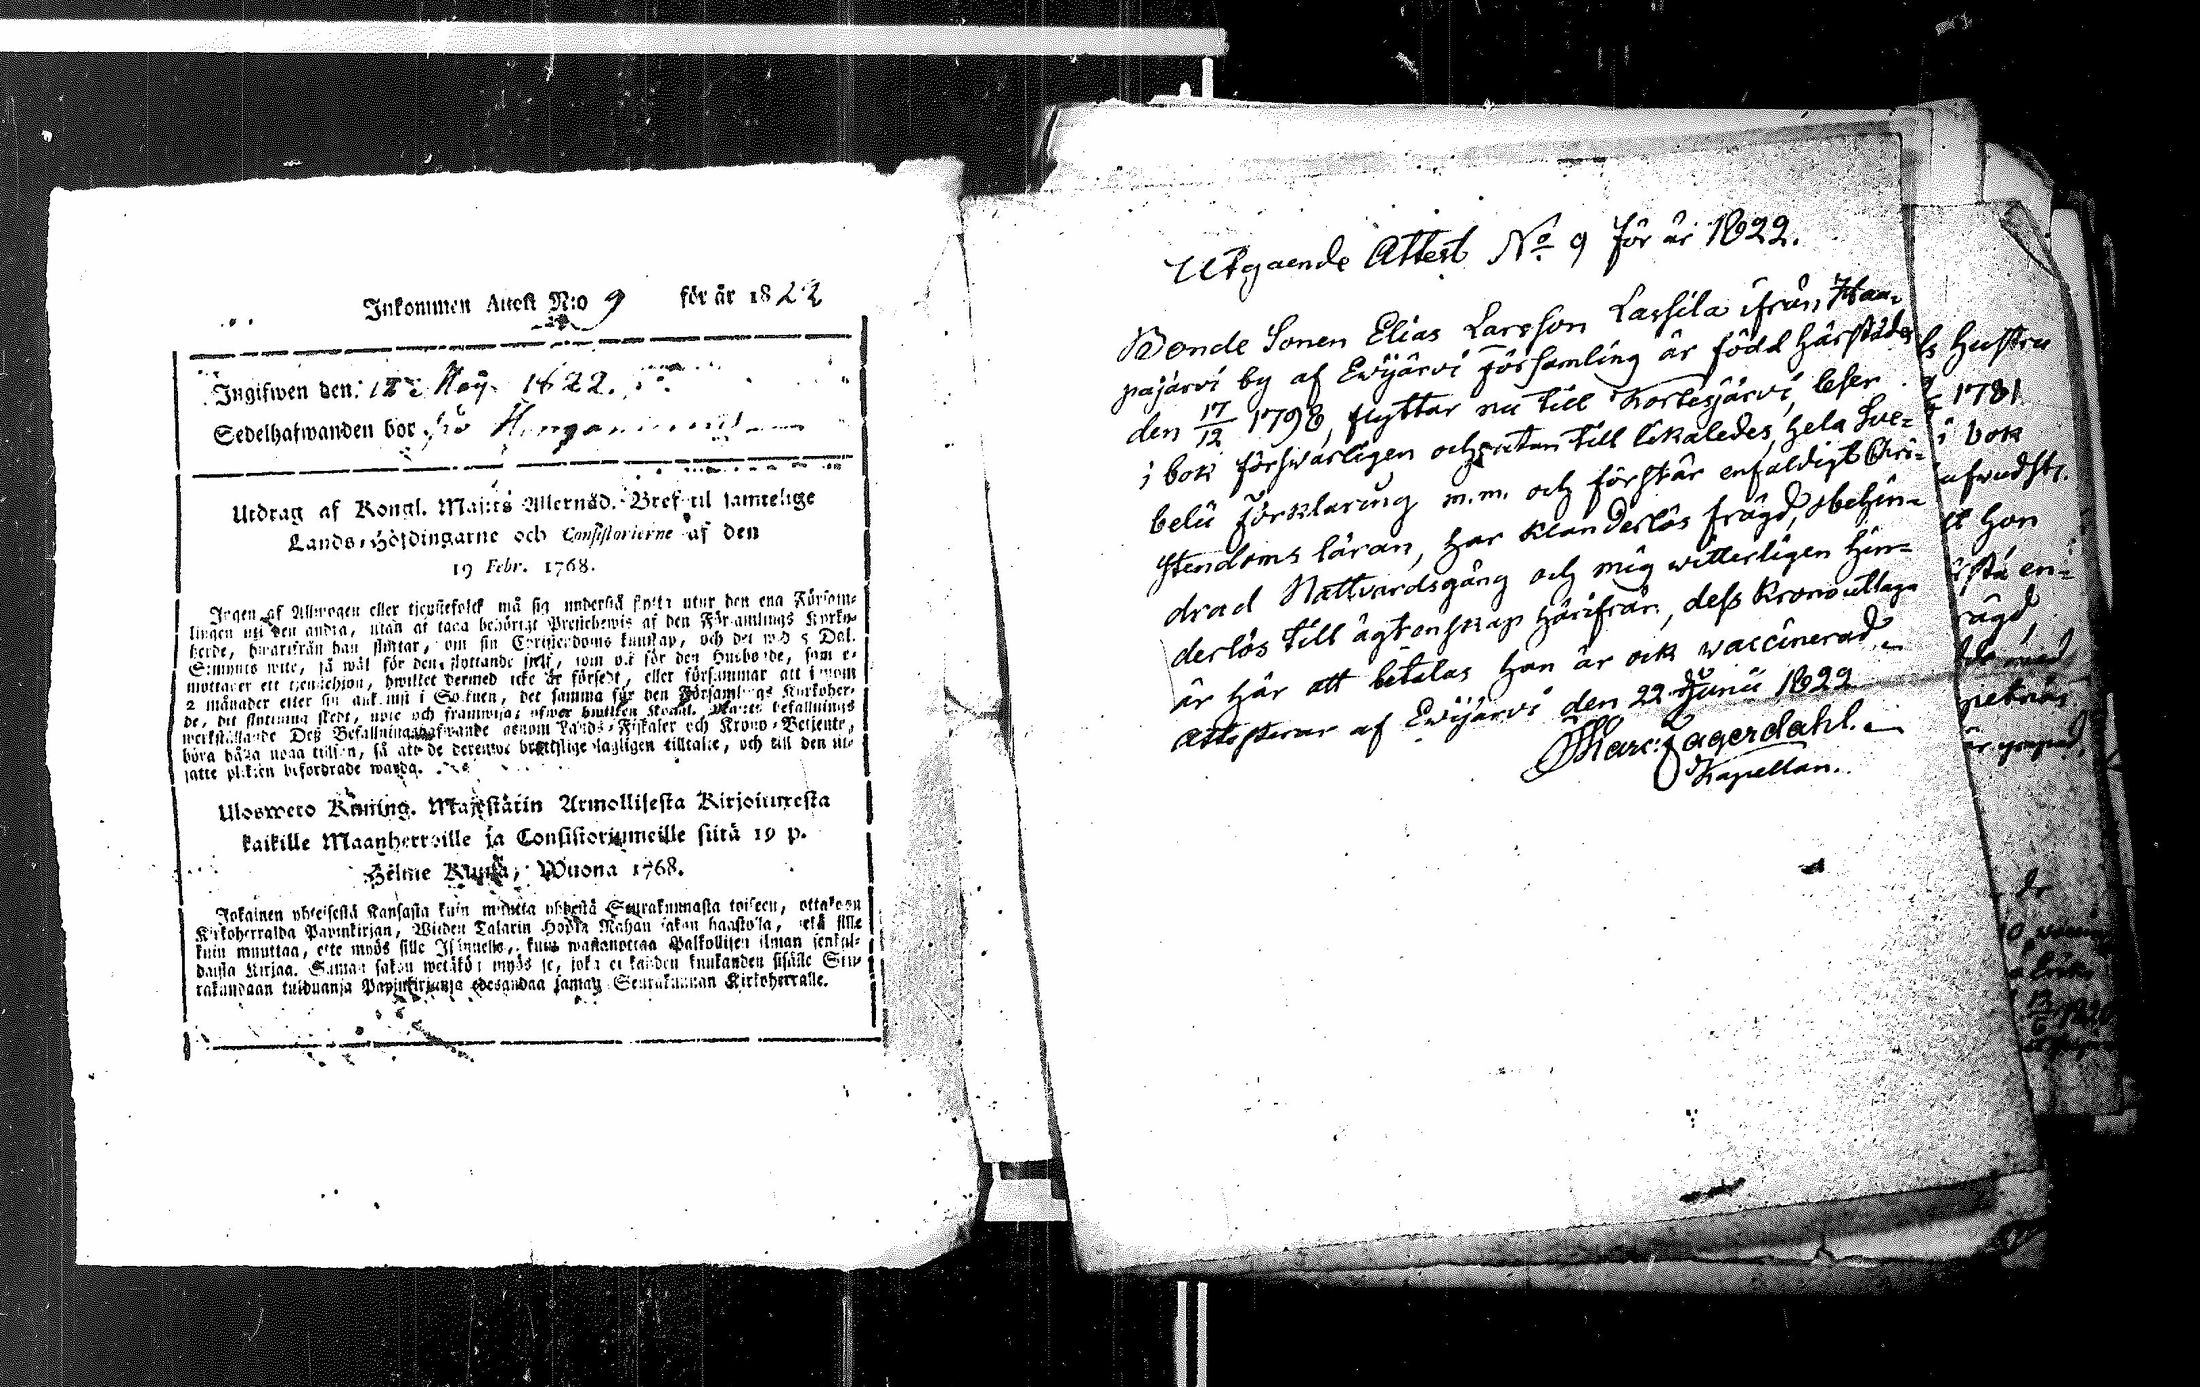 Inkommen Attest N:o 9 för år 1822
Ingifwen den: 1822.
Sedelhafwanden bor
Utdrag af Kongl. Maj:ts Allernåd. Bref til samtelige
Lands-Höfdingarne och Consistorierne af den
19 Febr. 1768.
Ingen af Allmogen eller tienstefolck må sig understå flytta utur den ena Försam-
lingen uti den andra, utan at taga behörigt Prestebewis af den Församlings Kyrko-
herde, hwarifrån han flyttar, om sin Christendoms kunskap, och det wid 5 Dal.
Silfmynts wite, så wäl för den flyttande sielf, som ock för den Husbonde, som e-
mottager ett tienstehion, hwilket dermed icke är försedt, eller försummar att inom
2 månader efter sin ankomst i Socknen, det samma för den Församlings Kyrkoher-
de, dit flyttning skedt, upte och framwisa; öfwer hwilken Kongl. Maj:ts befallnings
werkställande Deß Befallningshafwande genom Lands-Fiskaler och Krono-Betiente,
böra hålla noga tilsyn, så att de deremot brottslige lagligen tilltalte, och till den ut-
satte plikten befordrade warda.
Ulosweto Kuning. Majestätin Armollisesta Kirjoituxesta
kaikille Maanherroille ja Consistoriumeille siitä 19 p.
Helme Kuusa, Wuona 1768.
Jokainen yhteisestä Kansasta kuin muutta yhdestä Seurakunnasta toiseen, ottakoon
Kirkoherralda Papinkirjan, Wiiden Talarin Hopia Rahan sakon haastolla, sekä sille
kuin muuttaa, ette myös sille Isännelle, kuin wastanottaa Palkollisen ilman senkal-
daista Kirjaa. Saman sakon wetäkön myös se, joka ei kahden kuukauden sisälle Seu-
rakundaan tulduanja Papinkirjanja edesandaa saman Seurakunnan Kirkoherralle.
Utgaende Attest No. 9 för år 1822.
Bonde Sonen Elias Larsson Lassila ifrån Haa-
pajärvi by af Ewijärvi församling är född härstädes
den 17/12 1798, flyttar nu till Kortesjärvi, läser
i bok förswarligen och utan till likaledes, hela Sve-
belii förklaring m.m. och förstår enfaldigt Chri-
stendoms läran, har klanderlös frägd, obehin-
drad Nattvardsgång och mig witterligen hin-
derlös till ägtenskap härifrån, dess Kronoutlaga
är här att betalas han är ock waccinerad,
Attesterar af Ewijärvi den 22 Junii 1822
Marc: Lagerdahl.
Kapellan.
Hustru
1781
i bok
hon
frägd,